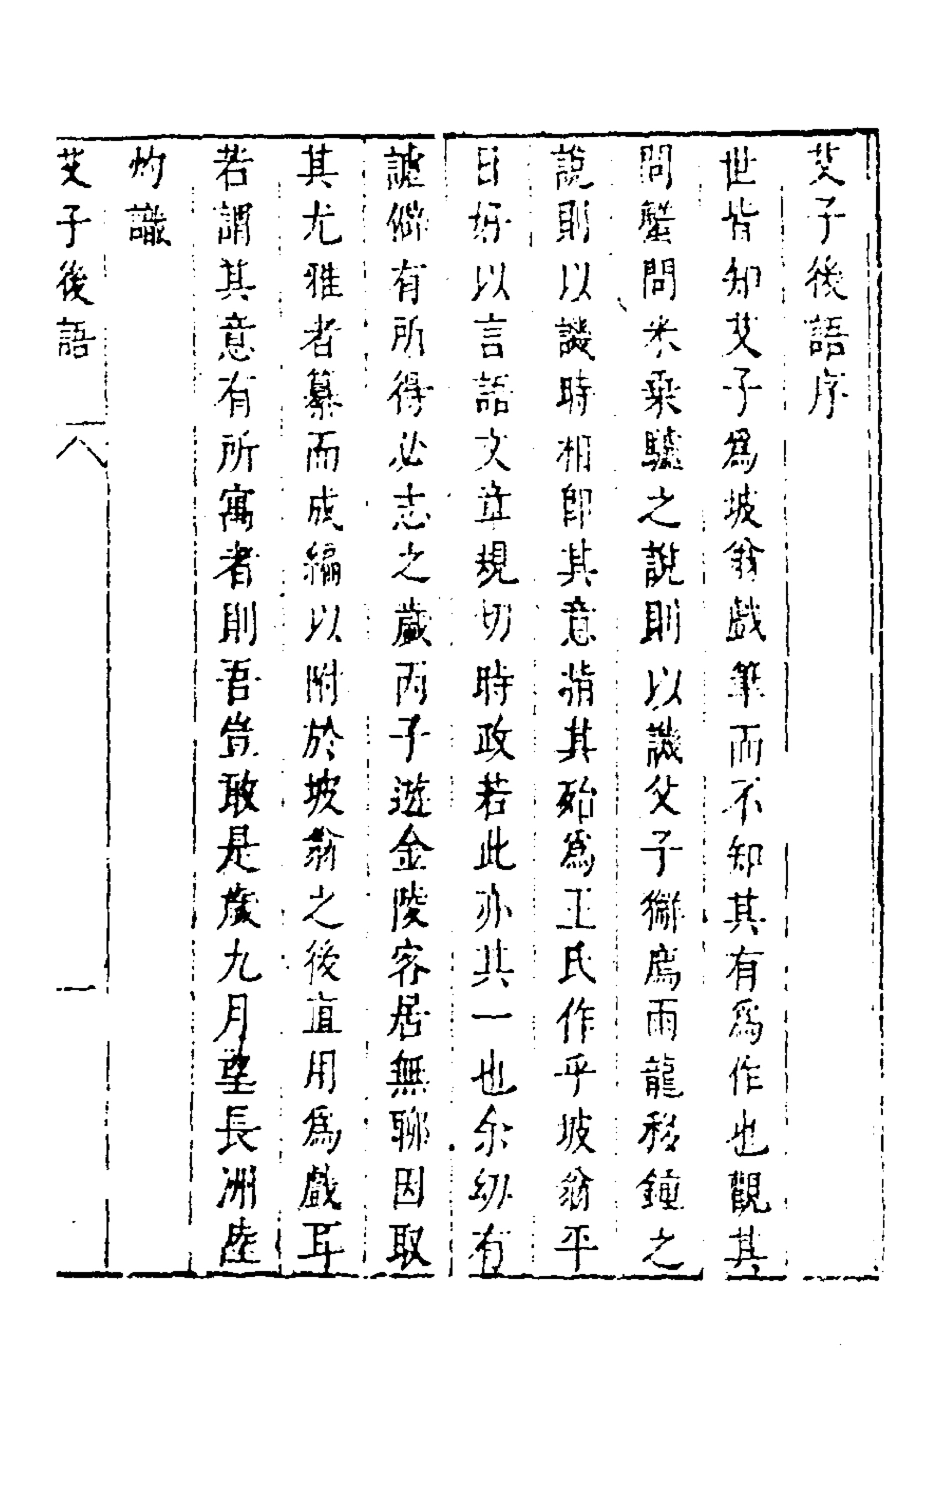 艾子後語序
世皆知艾子爲坡翁戲筆而不知其有爲作也觀其
問蟹問米乘驢之說則以譏父子獬廌雨龍移鐘之
說則以譏時相即其意指其殆爲王氏作乎坡翁平
日好以言語文章規切時政若此亦其一也余幼有
謔僻有所得必志之歲丙子遊金陵客居無聊因取
其尤雅者纂而成編以附於坡翁之後直用爲戲耳
若謂其意有所寓者則吾豈敢是歲九月望長洲陸
灼識
艾子後語 一